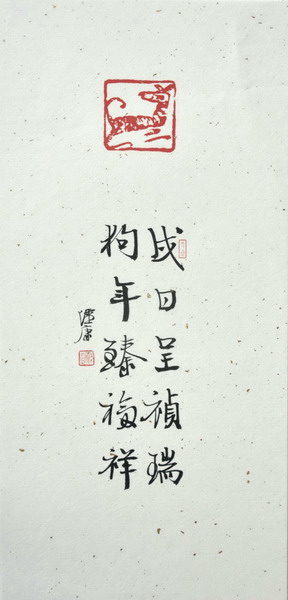 戌日呈禎瑞
狗年臻福祥